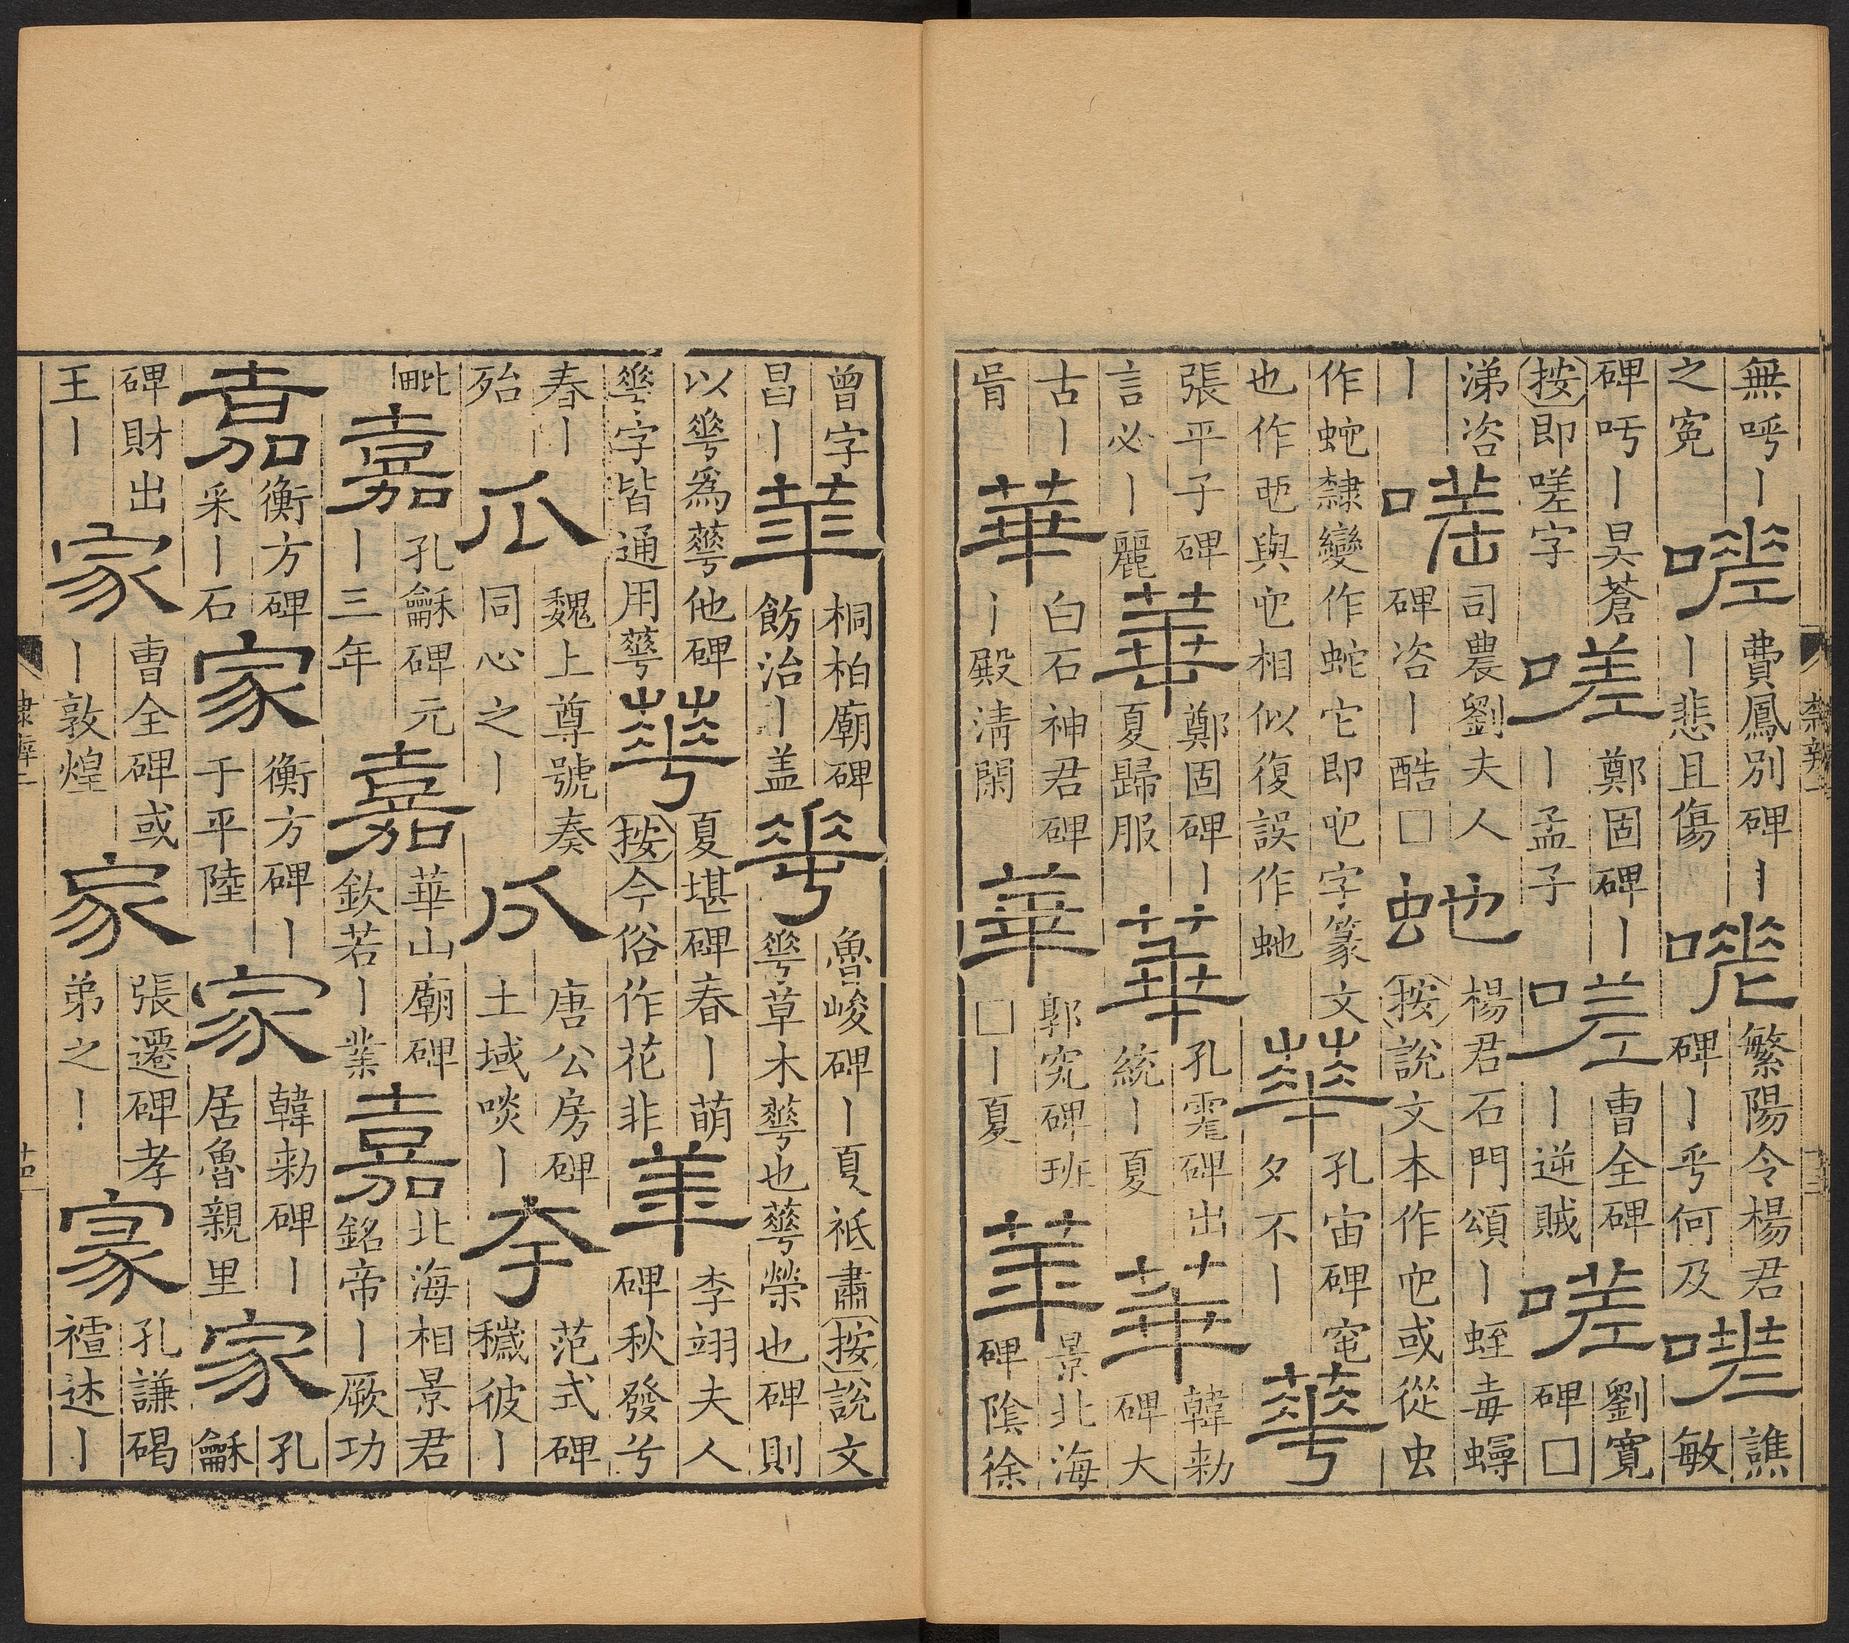 無呼丨
之寃
嗟
費鳳別碑丨
丨悲且傷
嗟
繁陽令楊君
碑丨乎何及
嗟
譙
敏
碑吁丨昊蒼
按即嗟字
嗟
鄭固碑丨
丨孟子
嗟
曹全碑
丨逆賊
嗟
劉寬
碑□
涕咨
丨
嗟
司農劉夫人
碑咨丨酷□
蛇
楊君石門頌丨蛭毒蟳
按說文本作它或從虫
作蛇隸變作蛇它即它字篆文
也作與它相似復誤作虵
華
孔宙碑窀
夕不丨
華
張平子碑
言必丨麗
華
鄭固碑丨
夏歸服
華
孔霮碑出
統丨夏
華
韓勑
碑大
古丨
肻
華
白石神君碑
丨殿淸閑
華
郭究碑班
□丨夏
華
景北海
碑陰徐
曾字
昌丨
華
桐柏廟碑
飭治丨盖
華
魯峻碑丨夏祗肅按說文
𠌶草木蕐也蕐榮也碑則
以𠌶爲蕐他碑
𠌶字皆通用蕐
華
夏堪碑春丨萌
按今俗作花非
華
李翊夫人
碑秋發兮
春丨
殆
瓜
魏上尊號奏
同心之丨
瓜
唐公房碑
土域啖丨
夸
范式碑
穢彼丨
毗
嘉
孔龢碑元
丨三年
嘉
華山廟碑
欽若丨業
嘉
北海相景君
銘帝丨厥功
嘉
衡方碑
采丨石
家
衡方碑丨
于平陸
家
韓勑碑丨
居魯親里
家
孔
龢
碑財出
王丨
家
曹全碑或
丨敦煌
家
張遷碑孝
弟之丨
家
孔謙碣
禮述丨
隸辨二
十四